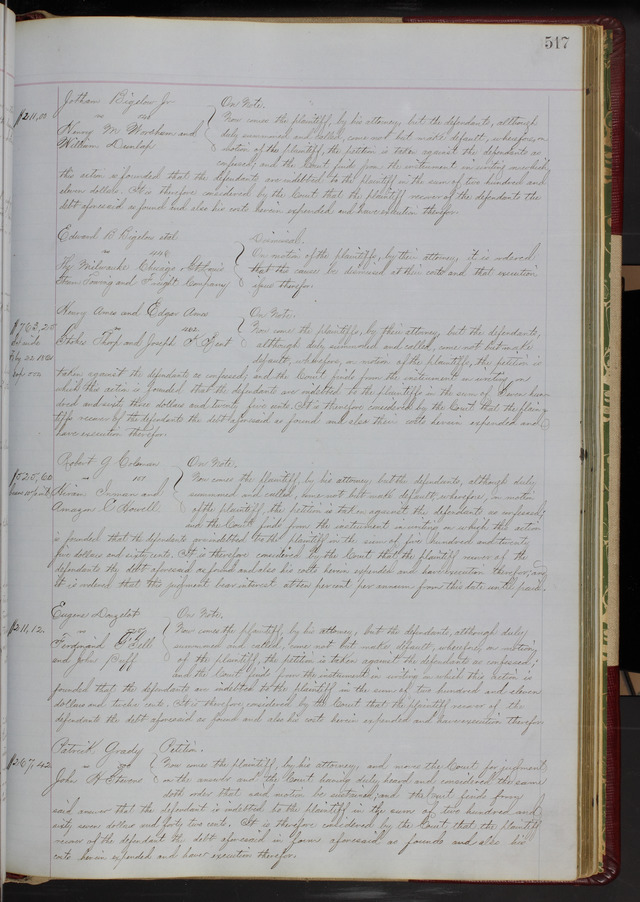 517
Jotham Bigelow Jr. On Note.
$211,00 vs Now comes the plaintiff, by his attorney, but the defendants, although
Henry M. Woodham and duly summoned and called, come not but make default, wherefore, on
William Dunlap motion of the plaintiff, the petition is taken against the defendants as
confessed, and the Court finds from the instrument in writing on which
this action is founded that the defendants are indebted to the plaintiff in the sum of two hundred and
eleven dollars. It is therefore considered by the Court that the plaintiff recover of the defendants the
debt aforesaid as found and also his costs herein expended and have execution therefor.
Edward B. Bigelow et al Dismissal.
vs 448 On motion of the plaintiffs, by their attorney, it is ordered
The Milwaukee Chicago & St Louis that this cause be dismissed at their costs and that execution
Steam Towing and Freight Company issue therefor.
Henry Ames and Edgar Ames On Note.
$762,25 vs Now come the plaintiffs, by their attorney, but the defendants,
Stokes Thorp and Joseph F. Gent although duly summoned and called, come not but make
default, wherefore, on motion of the plaintiffs, the petition is
taken against the defendants as confessed, and the Court finds from the instrument in writing on
which this action is founded that the defendants are indebted to the plaintiffs in the sum of Seven hun-
dred and sixty dollars and twenty five cents. It is therefore considered by the Court that the plain-
tiffs recover of the defendants the debt aforesaid as found and also their costs herein expended and
have execution therefor.
Robert G. Coleman On Note.
$525,60 vs 187 Now comes the plaintiff, by his attorney, but the defendants, although duly
Hiram Inman and summoned and called, come not but make default, wherefore, on motion
Amazon C. Howell of the plaintiff, the petition is taken against the defendants as confessed;
and the Court finds from the instrument in writing on which this action
is founded that the defendants are indebted to the plaintiff in the sum of five hundred and twenty
five dollars and sixty cents. It is therefore considered by the Court that the plaintiff recover of the
defendants the debt aforesaid as found and also his costs herein expended and have execution therefor, and
it is ordered that this judgment bear interest at ten per cent per annum from this date until paid.
Eugene Dougelot On Note.
$211,12 vs Now comes the plaintiff, by his attorney, but the defendants, although duly
Ferdinand summoned and called, come not but make default, wherefore, on motion
and John Buff of the plaintiff, the petition is taken against the defendants as confessed;
and the Court finds from the instrument in writing on which this action is
founded that the defendants are indebted to the plaintiff in the sum of two hundred and eleven
dollars and twelve cents. It is therefore considered by the Court that the plaintiff recover of the
defendants the debt aforesaid as found and also his costs herein expended and have execution therefor.
Patrick Grady Petition.
$267,42 vs Now comes the plaintiff, by his attorney, and moves the Court for judgment
John N. Stevens on the answer and the Court having duly heard and considered the same
doth order that said motion be sustained, and the Court finds from
said answer that the defendant is indebted to the plaintiff in the sum of two hundred and
sixty seven dollars and forty two cents. It is therefore considered by the Court that the plaintiff
recover of the defendant the debt aforesaid in form aforesaid as found and also his
costs herein expended and have execution therefor.